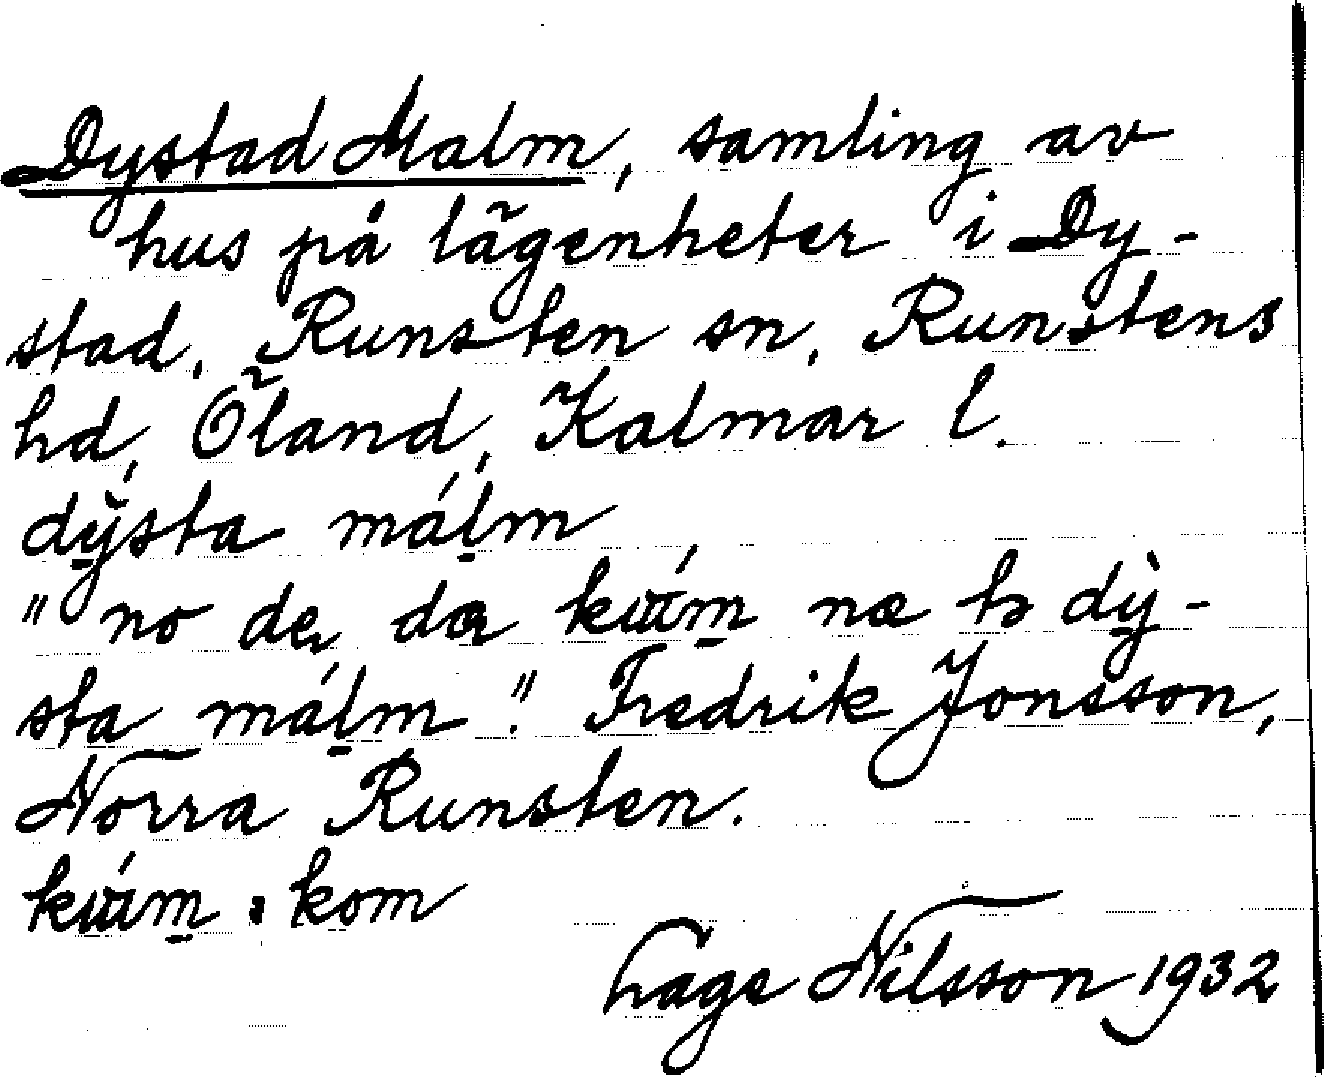 Dystad Malm, samling av
hus på lägenheter i Dy-
stad, Runsten sn, Runstens
hd, Öland, Kalmar l.
dy̆sta máḷm
" no de da kúm̱ næ ìsta
sta máḷm." Fredrik Jonsson,
Norra Runsten.
kúm̱ : kom
Hage Nilsson 1932